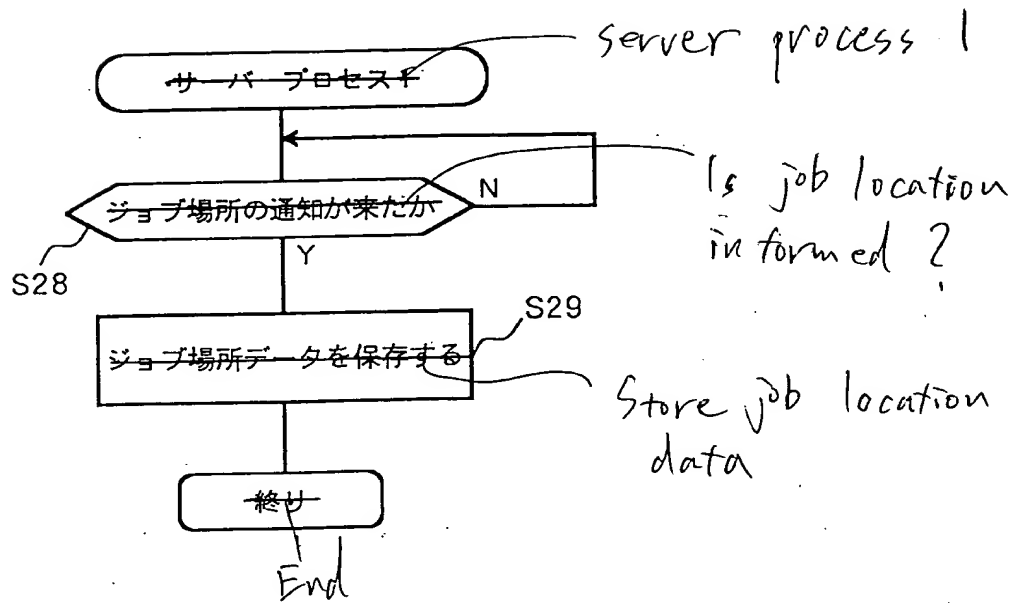 server process 1
サーバープロセス1
N
ジョブ場所の通知が来たか
Is job location
informed?
S28
Y
S29
ジョブ場所データを保存する
Store job location
data
終り
End